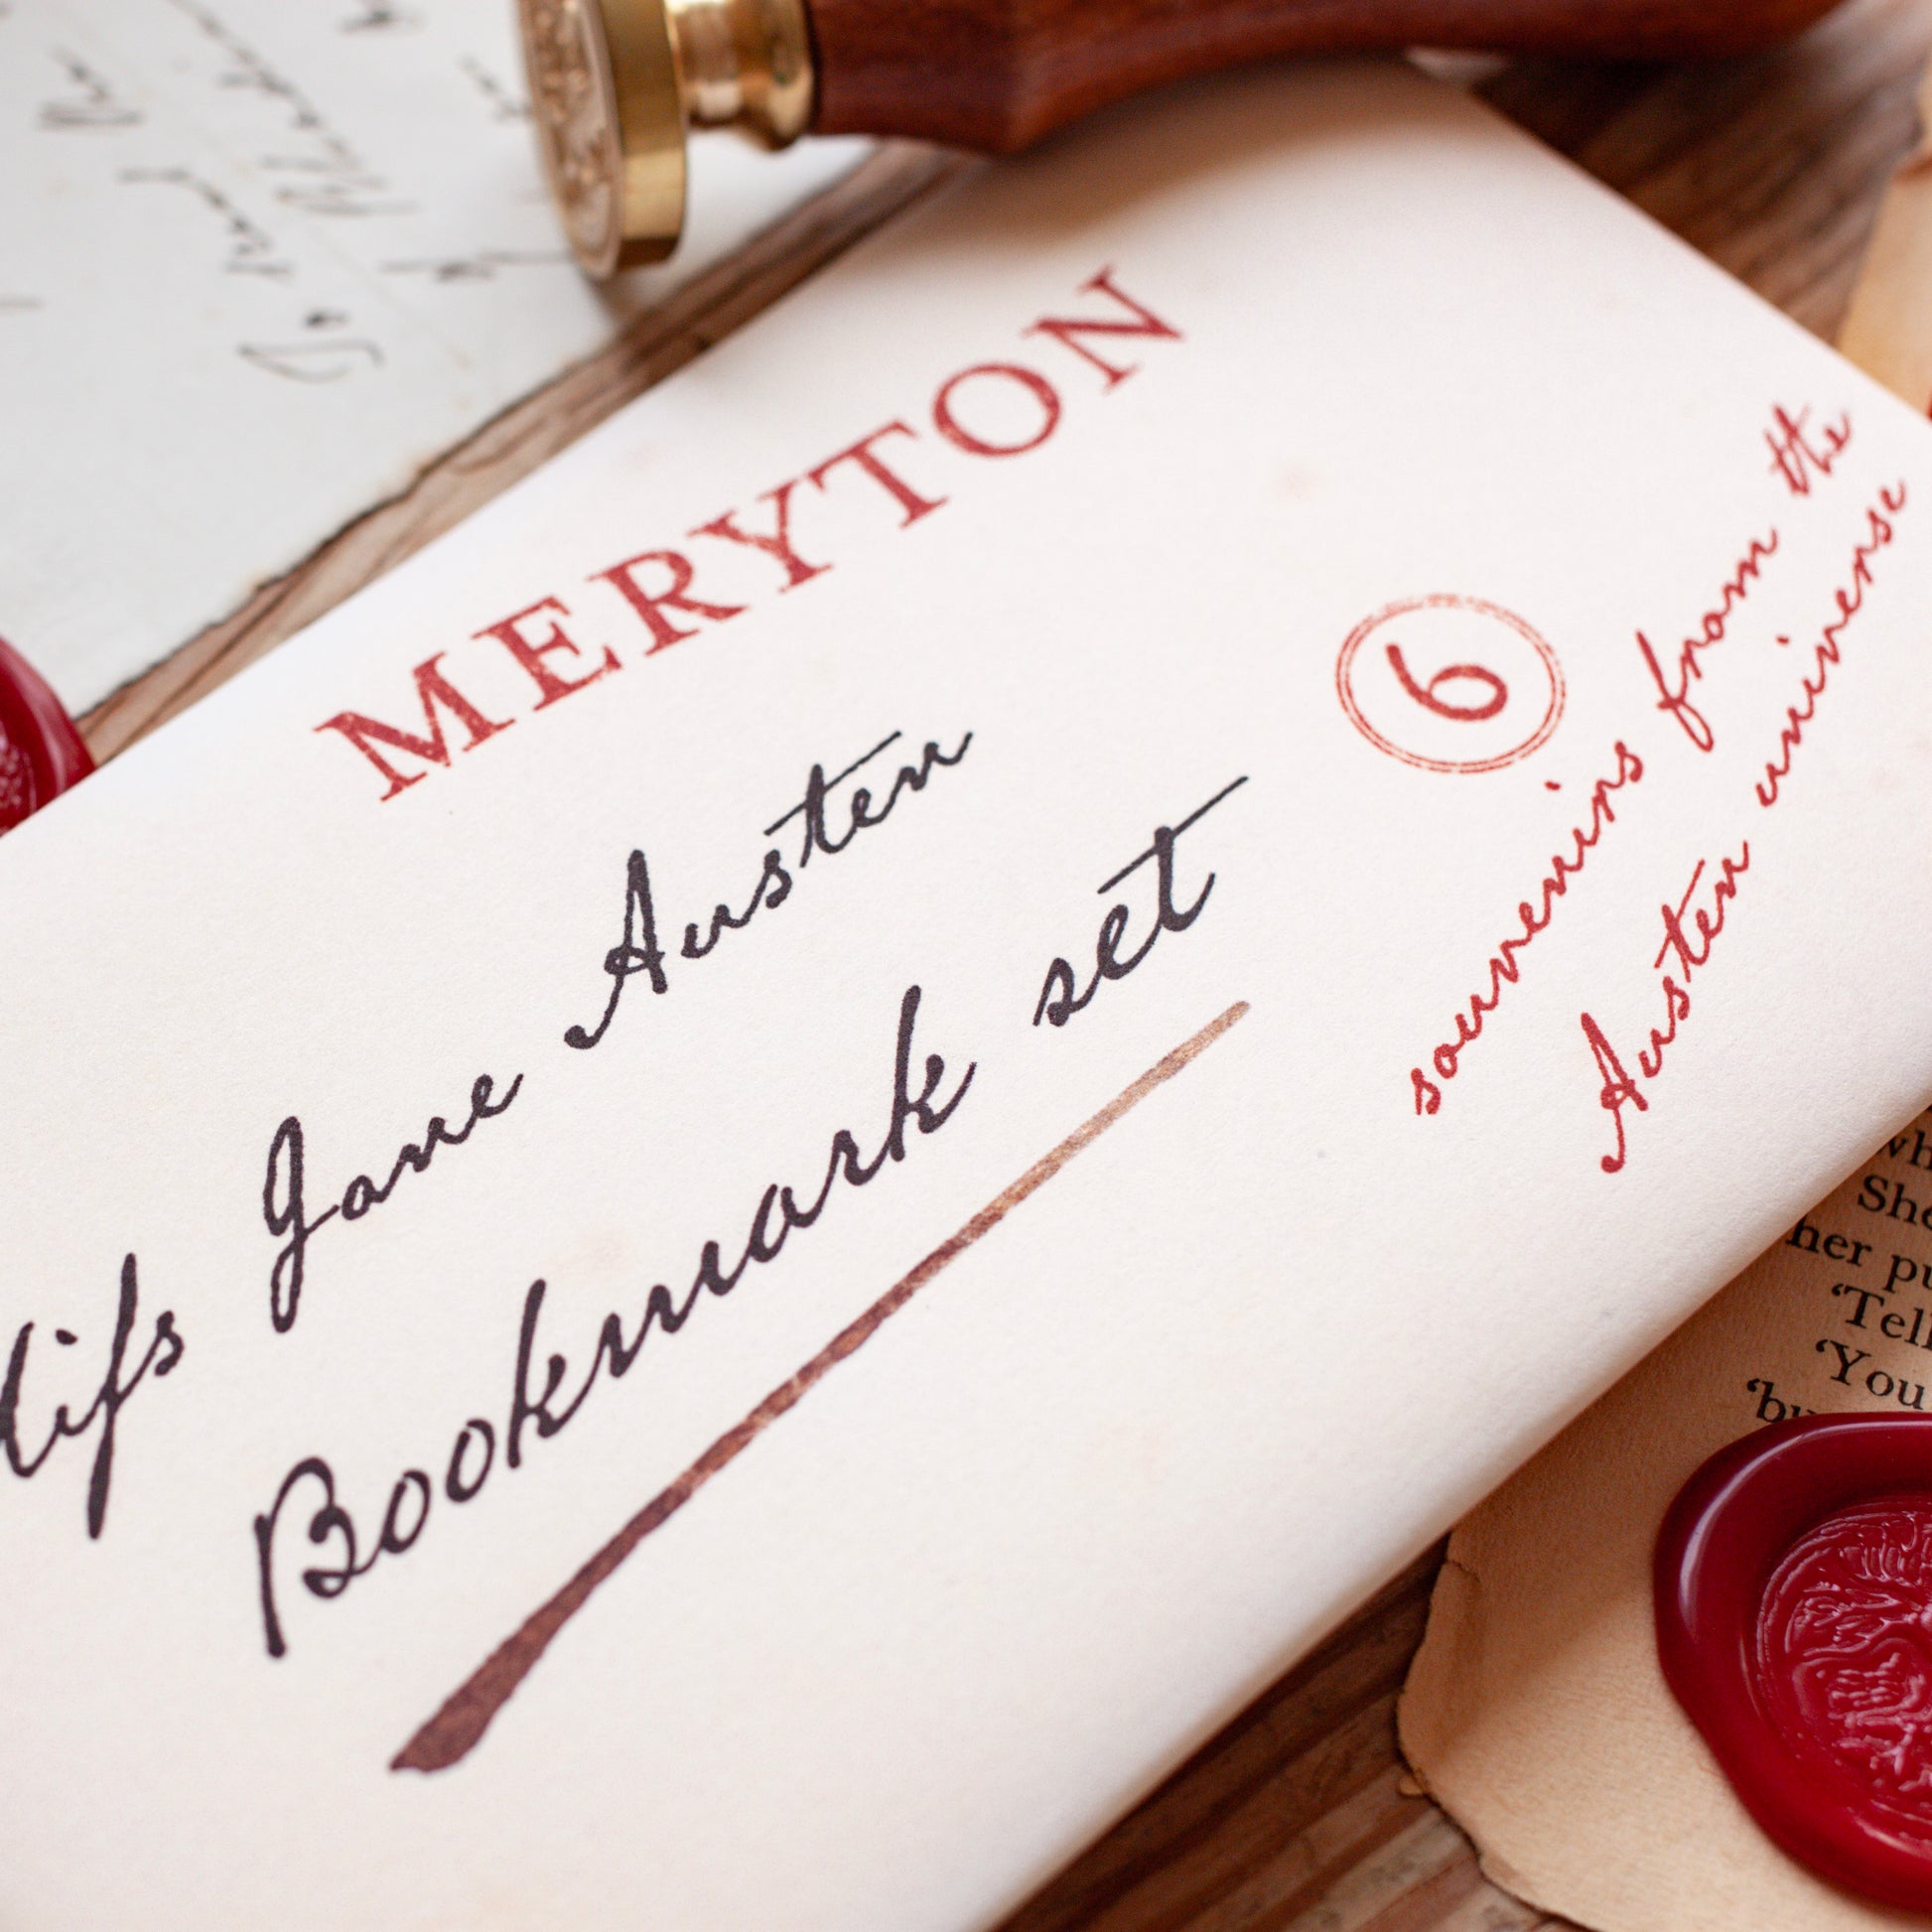 MERYTON
Jane Austen
Bookmark set
6
souvenirs from the
Austen universe
She
her
‘Tell
‘You